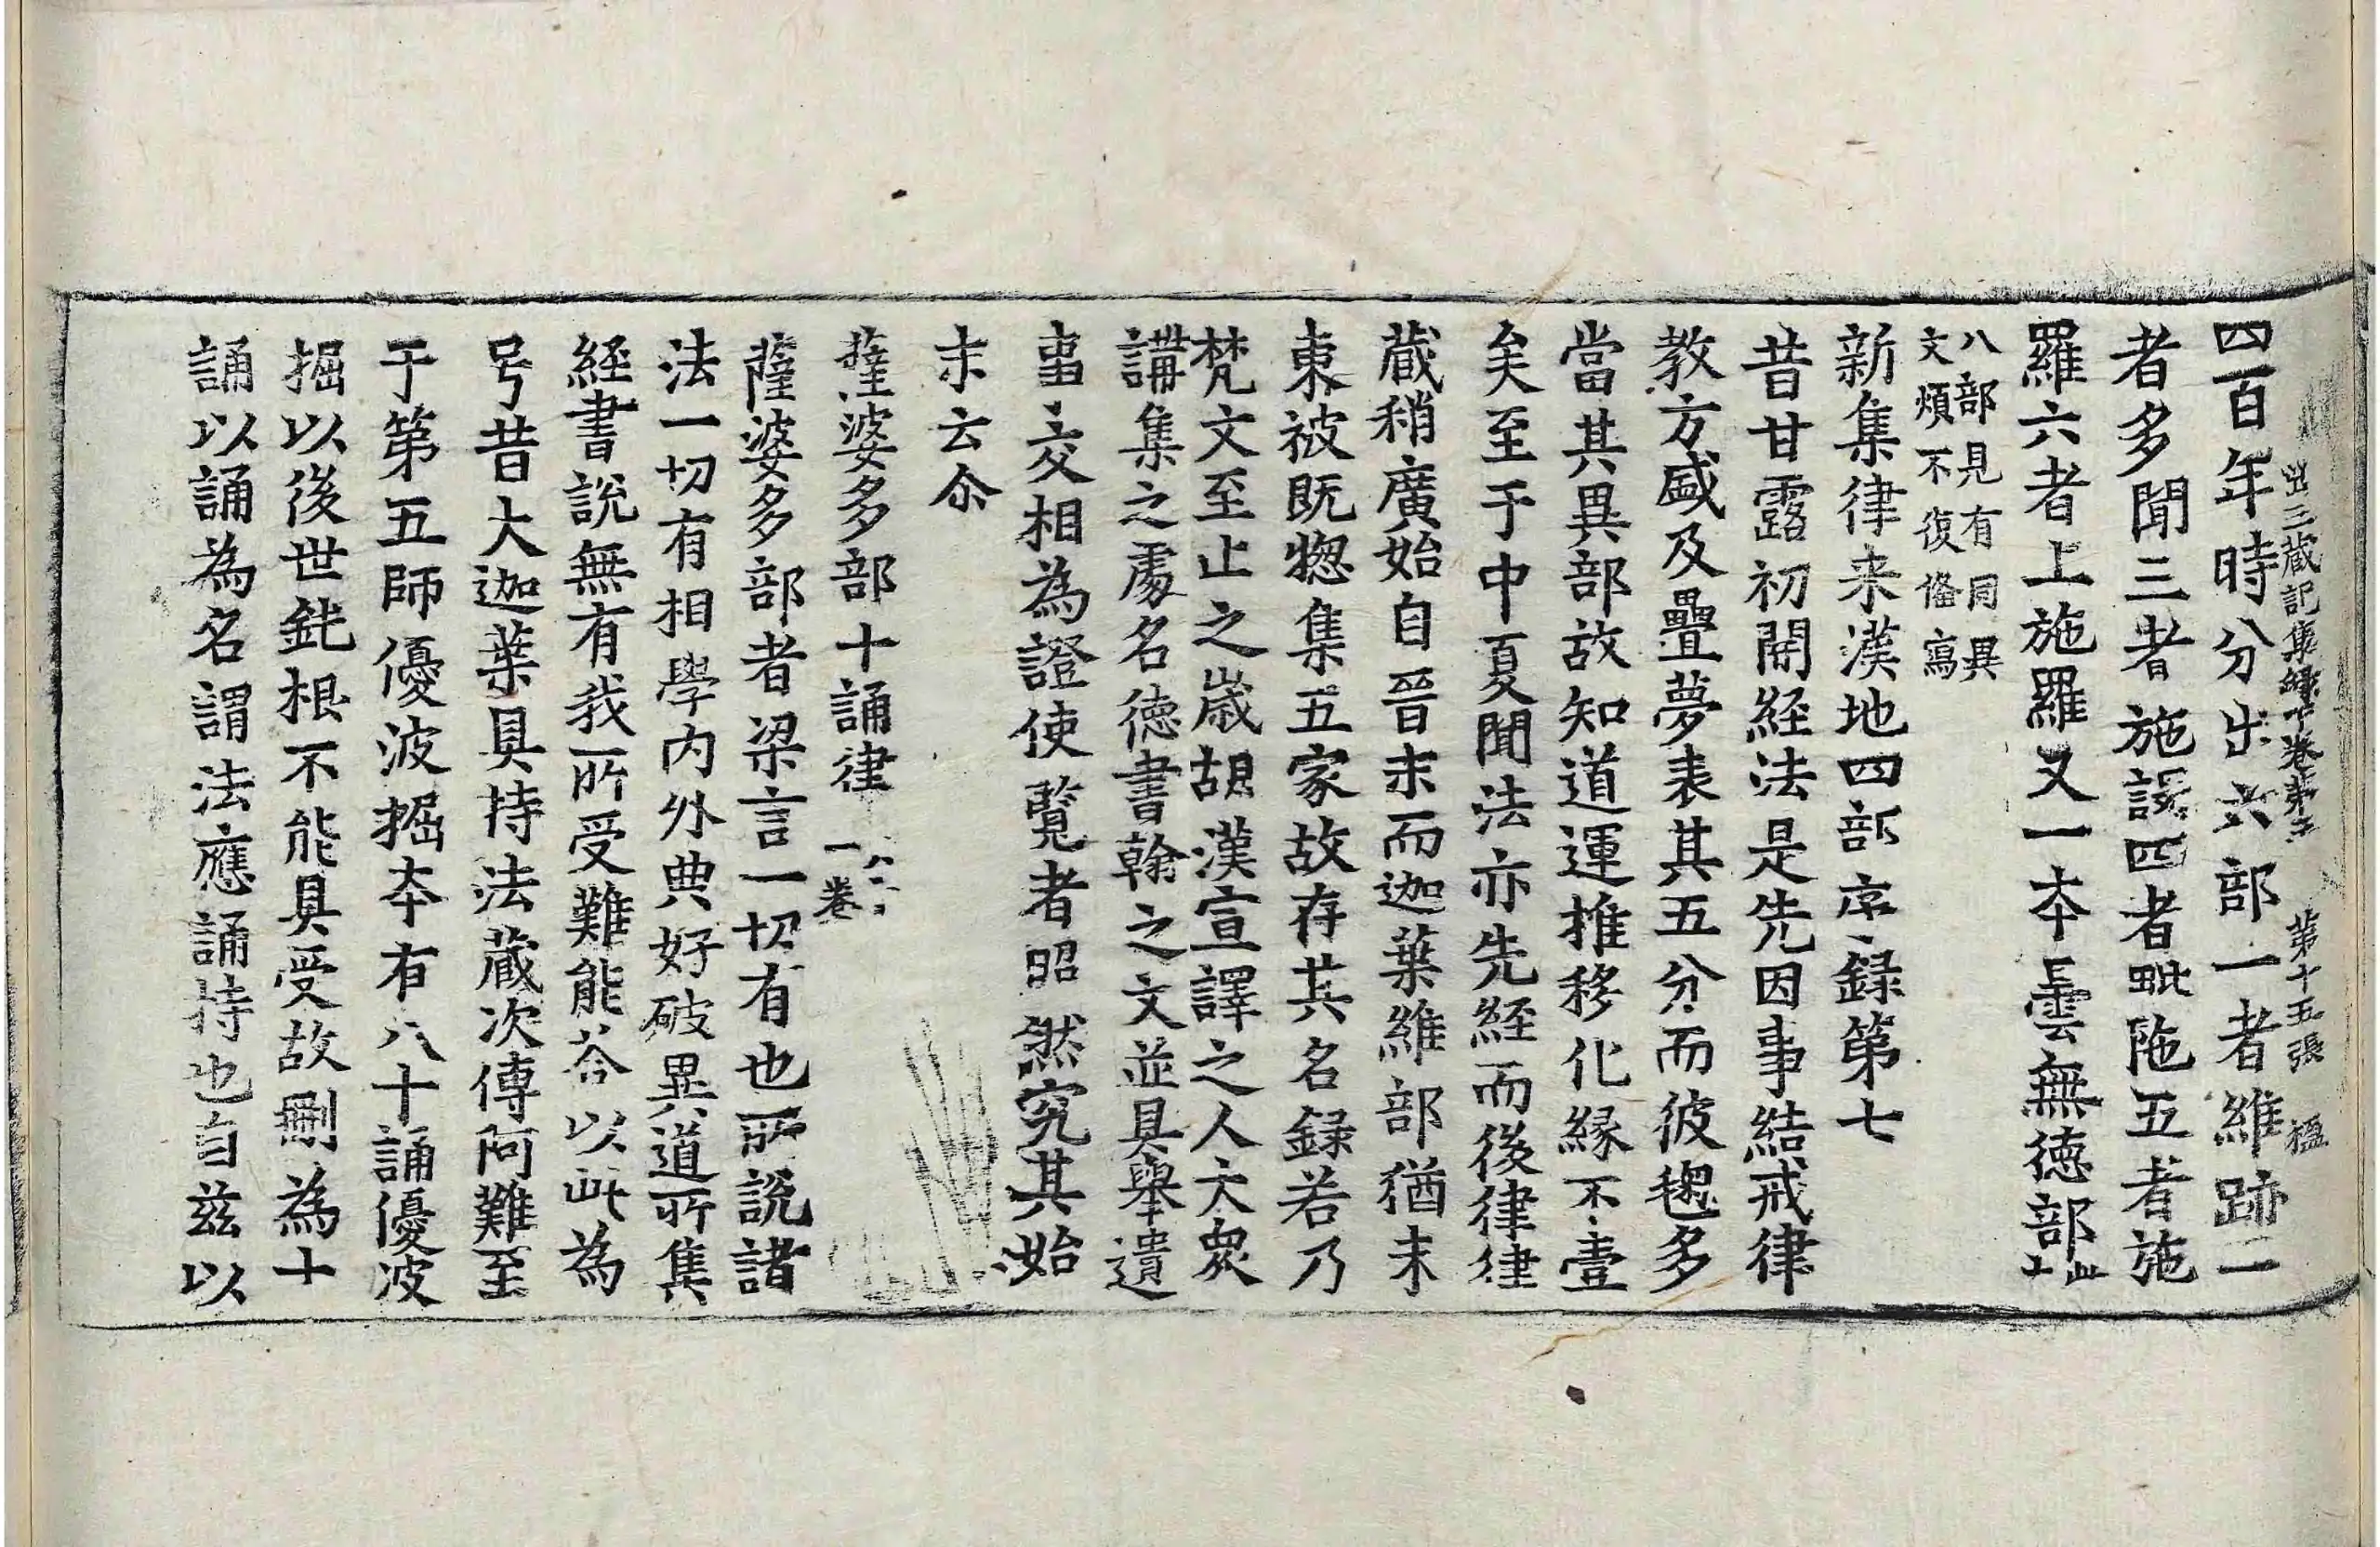 出三蔵記集録十卷第三 第十五張 楹
四百年時分出六部一者維跡二
者多聞三者施護四者毗陁五者施
羅六者上施羅又一夲曇無徳部此十
八部見有同異
文煩不復俻寫
新集律来漢地四部序録第七
昔甘露初開経法是先因事結戒律
教方盛及疊夢表其五分而彼毱多
當其異部故知道運推移化縁不壹
矣至于中夏聞法亦先経而後律律
蔵稍廣始自晉末而迦葉維部猶未
東被既惣集五家故存其名録若乃
梵文至止之歳胡漢宣譯之人大衆
講集之處名徳書翰之文並具舉遺
事交相為證使覧者昭然究其始
末云尒
薩婆多部十誦律 六十一卷
薩婆多部者梁言一切有也所說諸
法一切有相學内外典好破異道所集
経書說無有我所受難能荅以此為
号昔大迦葉具持法蔵次傳阿難至
于第五師優波掘夲有八十誦優波
掘以後世鈍根不能具受故刪為十
誦以誦為名謂法應誦持也自茲以